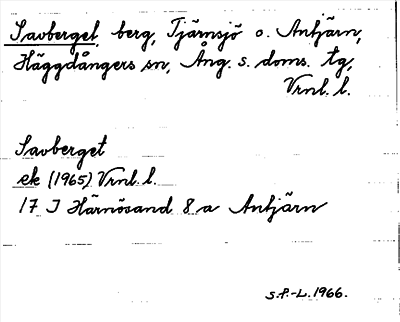 Savberget, berg, Tjärnsjö o. Antjärn,
Häggdångers sn, Ång. s. doms. tg,
Vrnl. l.
Savberget
ek (1965) Vrnl. l.
17 I Härnösand 8 a Antjärn
S.P.-L. 1966.